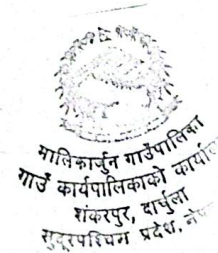 मालिकार्जुन गाउँपालिका
गाउँ कार्यपालिकाको
शंकरपुर, दार्चुला
सुदूरपश्चिम प्रदेश,